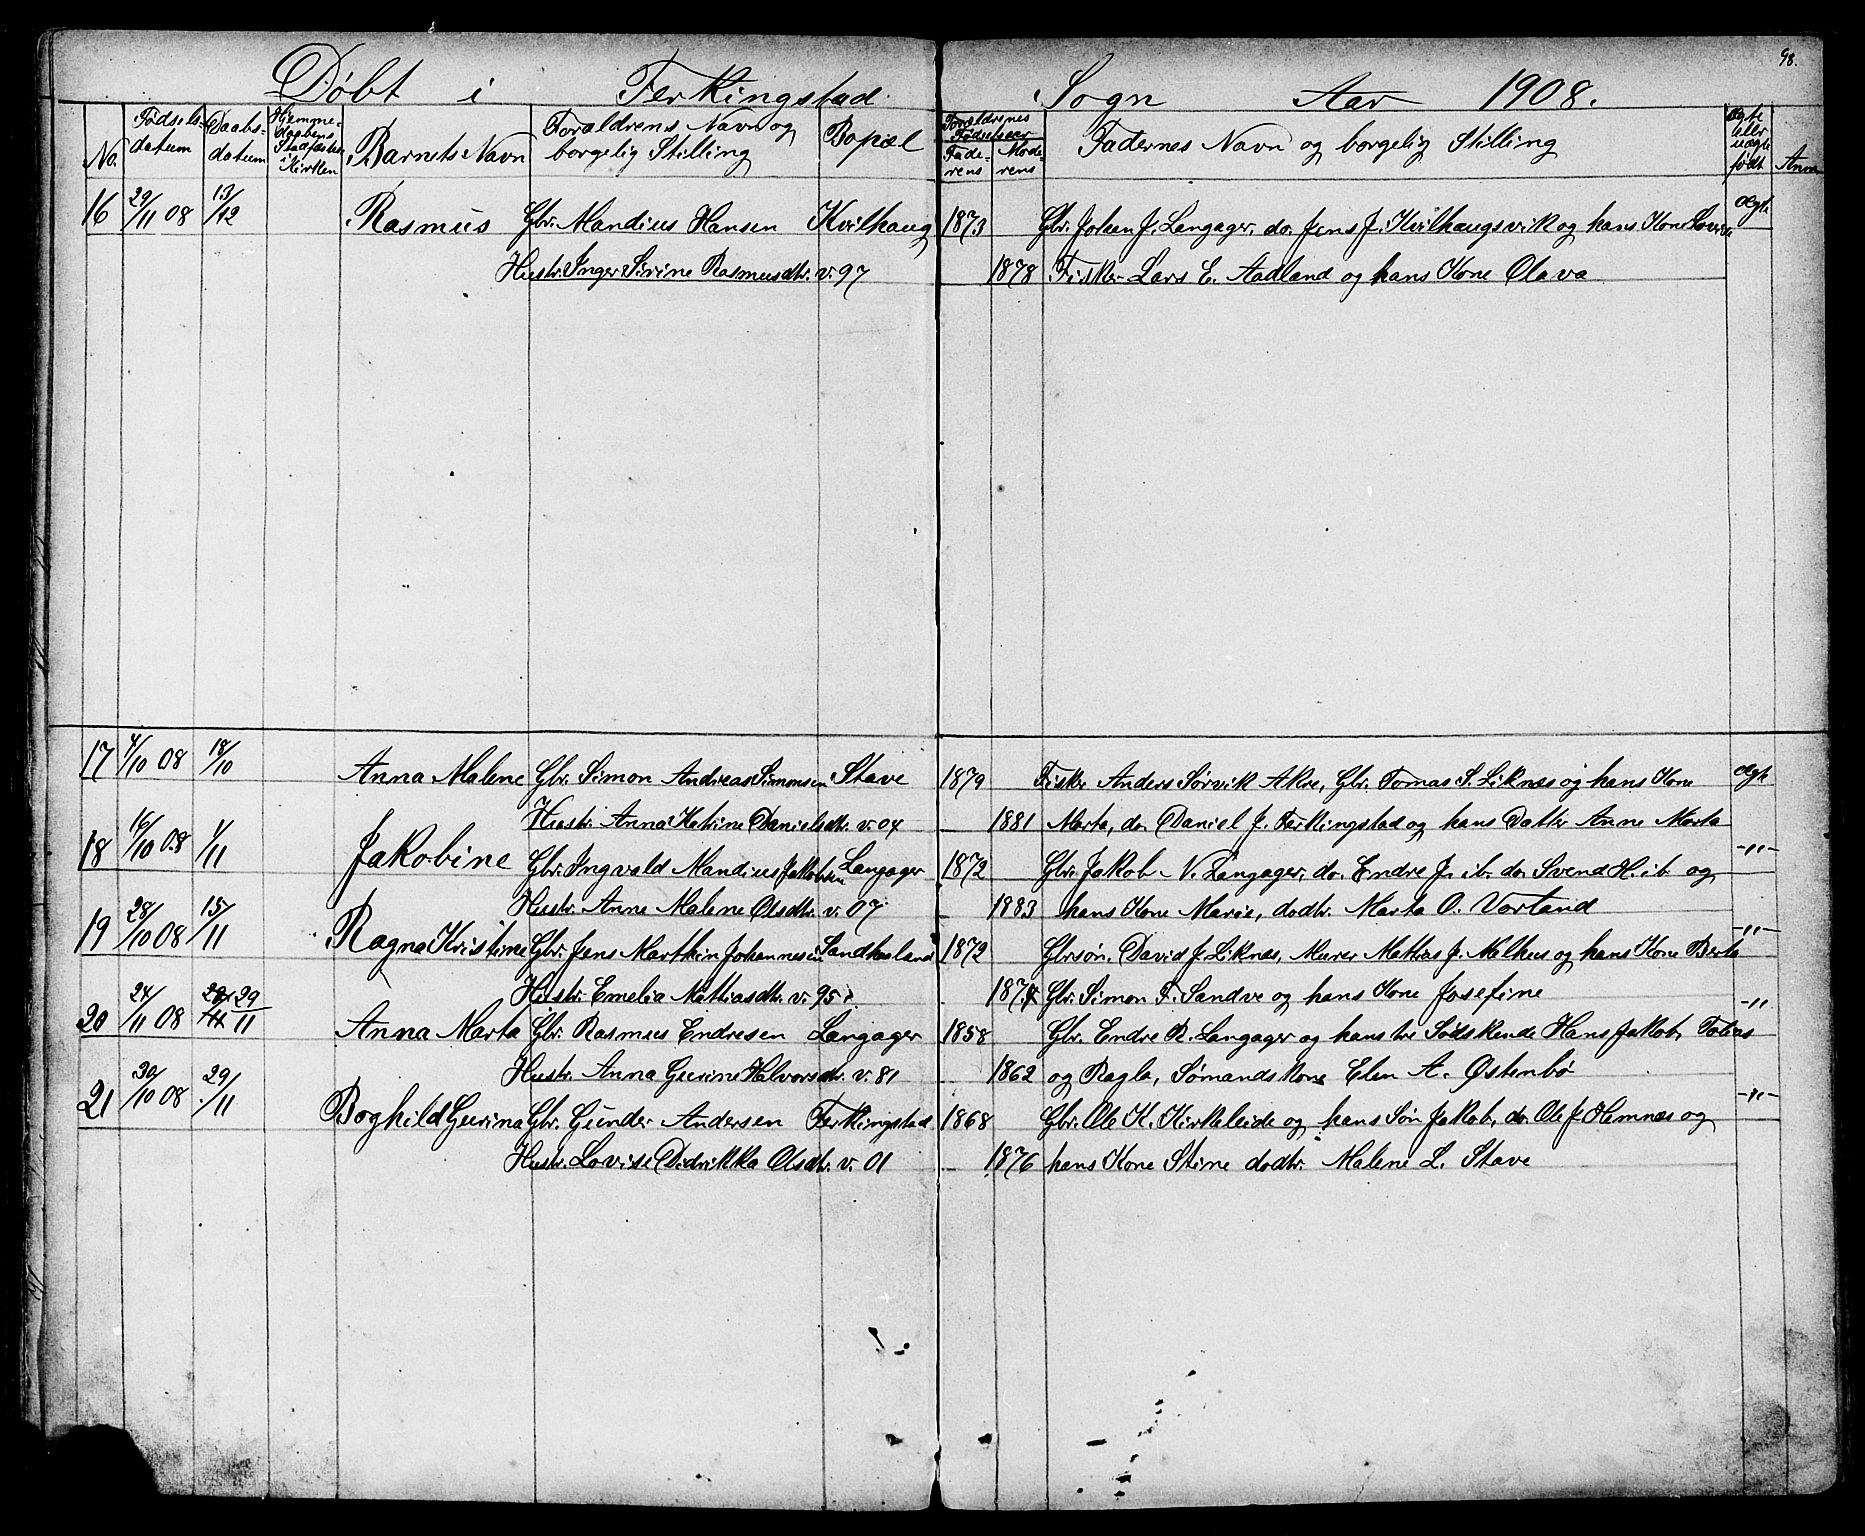 98.
Døbt i Ferkingstad Sogn Aar 1908.
No. Fødselsdatum Daabsdatum Hjemmedaabens Stadfæstelse i Kirken Barnets Navn Forældrens Navn og borgelig Stilling Bopæl Forældrenes Fødselsaar Faderens Moderens Fadernes Navn og borgelig Stilling Ægte eller uægte født Anm
16 29/11 08 13/12 Rasmus Gbr. Mandius Hansen Kvilhaug 1873 Gbr. Johan J. Langager, do. Jens J. Kvilhaugsvik og hans Kone Lovise ægte
Hustr. Inger Sirine Rasmusdtr. v. 97 1878 Fisker Lars E. Aadland og hans Kone Olava
17 4/10 08 18/10 Anna Malene Gbr. Simon Andreas Simonsen Stave 1879 Fisker Anders Sørvik Akre, Gbr. Tomas S. Liknæs og hans Kone ægte
Hustr. Anna Katrine Danielsdtr. v. 04 1881 Marta, do. Daniel J. Ferkingstad og hans Datter Anne Marta
18 16/10 08 1/11 Jakobine Gbr. Ingvald Mandius Jakobsen Langager 1872 Gbr. Jakob N. Langager, do. Endre J. ib. do. Svend H. ib. og -"-
Hustr. Anne Malene Olsdtr. v. 07 1883 hans Kone Marie, do dtr. Marta O. Vorland
19 28/10 08 15/11 Ragna Kristine Gbr. Jens Marthin Johannesen Sandhåland 1872 Gbrsøn. David J. Liknæs, Murer Mathias J. Melhus og hans Kone Berta -"-
Hustr. Emelia Mathiasdtr. v. 95. 1874 Gbr. Simon F. Sandve og hans Kone Josefine
20 24/11 08 29/11 Anna Marta Gbr. Rasmus Endresen Langager 1858 Gbr. Endre R. Langager og hans tre Sødskende Hans Jakob, Tobias -"-
Hustr. Anna Gurine Halvorsdtr. v. 81 1862 og Ragla, Sømands Kone Elen A. Østenbø
21 30/10 08 29/11 Boghild Gurina Gbr. Gunder Andersen Ferkingstad 1868 Gbr. Ole K. Kirkeleide og hans Søn Jakob, do. Ole J. Hemnæs og -"-
Hustr. Lovise Didrikka Olsdtr. v. 01 1876 hans Kone Stine do dtr. Malene L. Stave